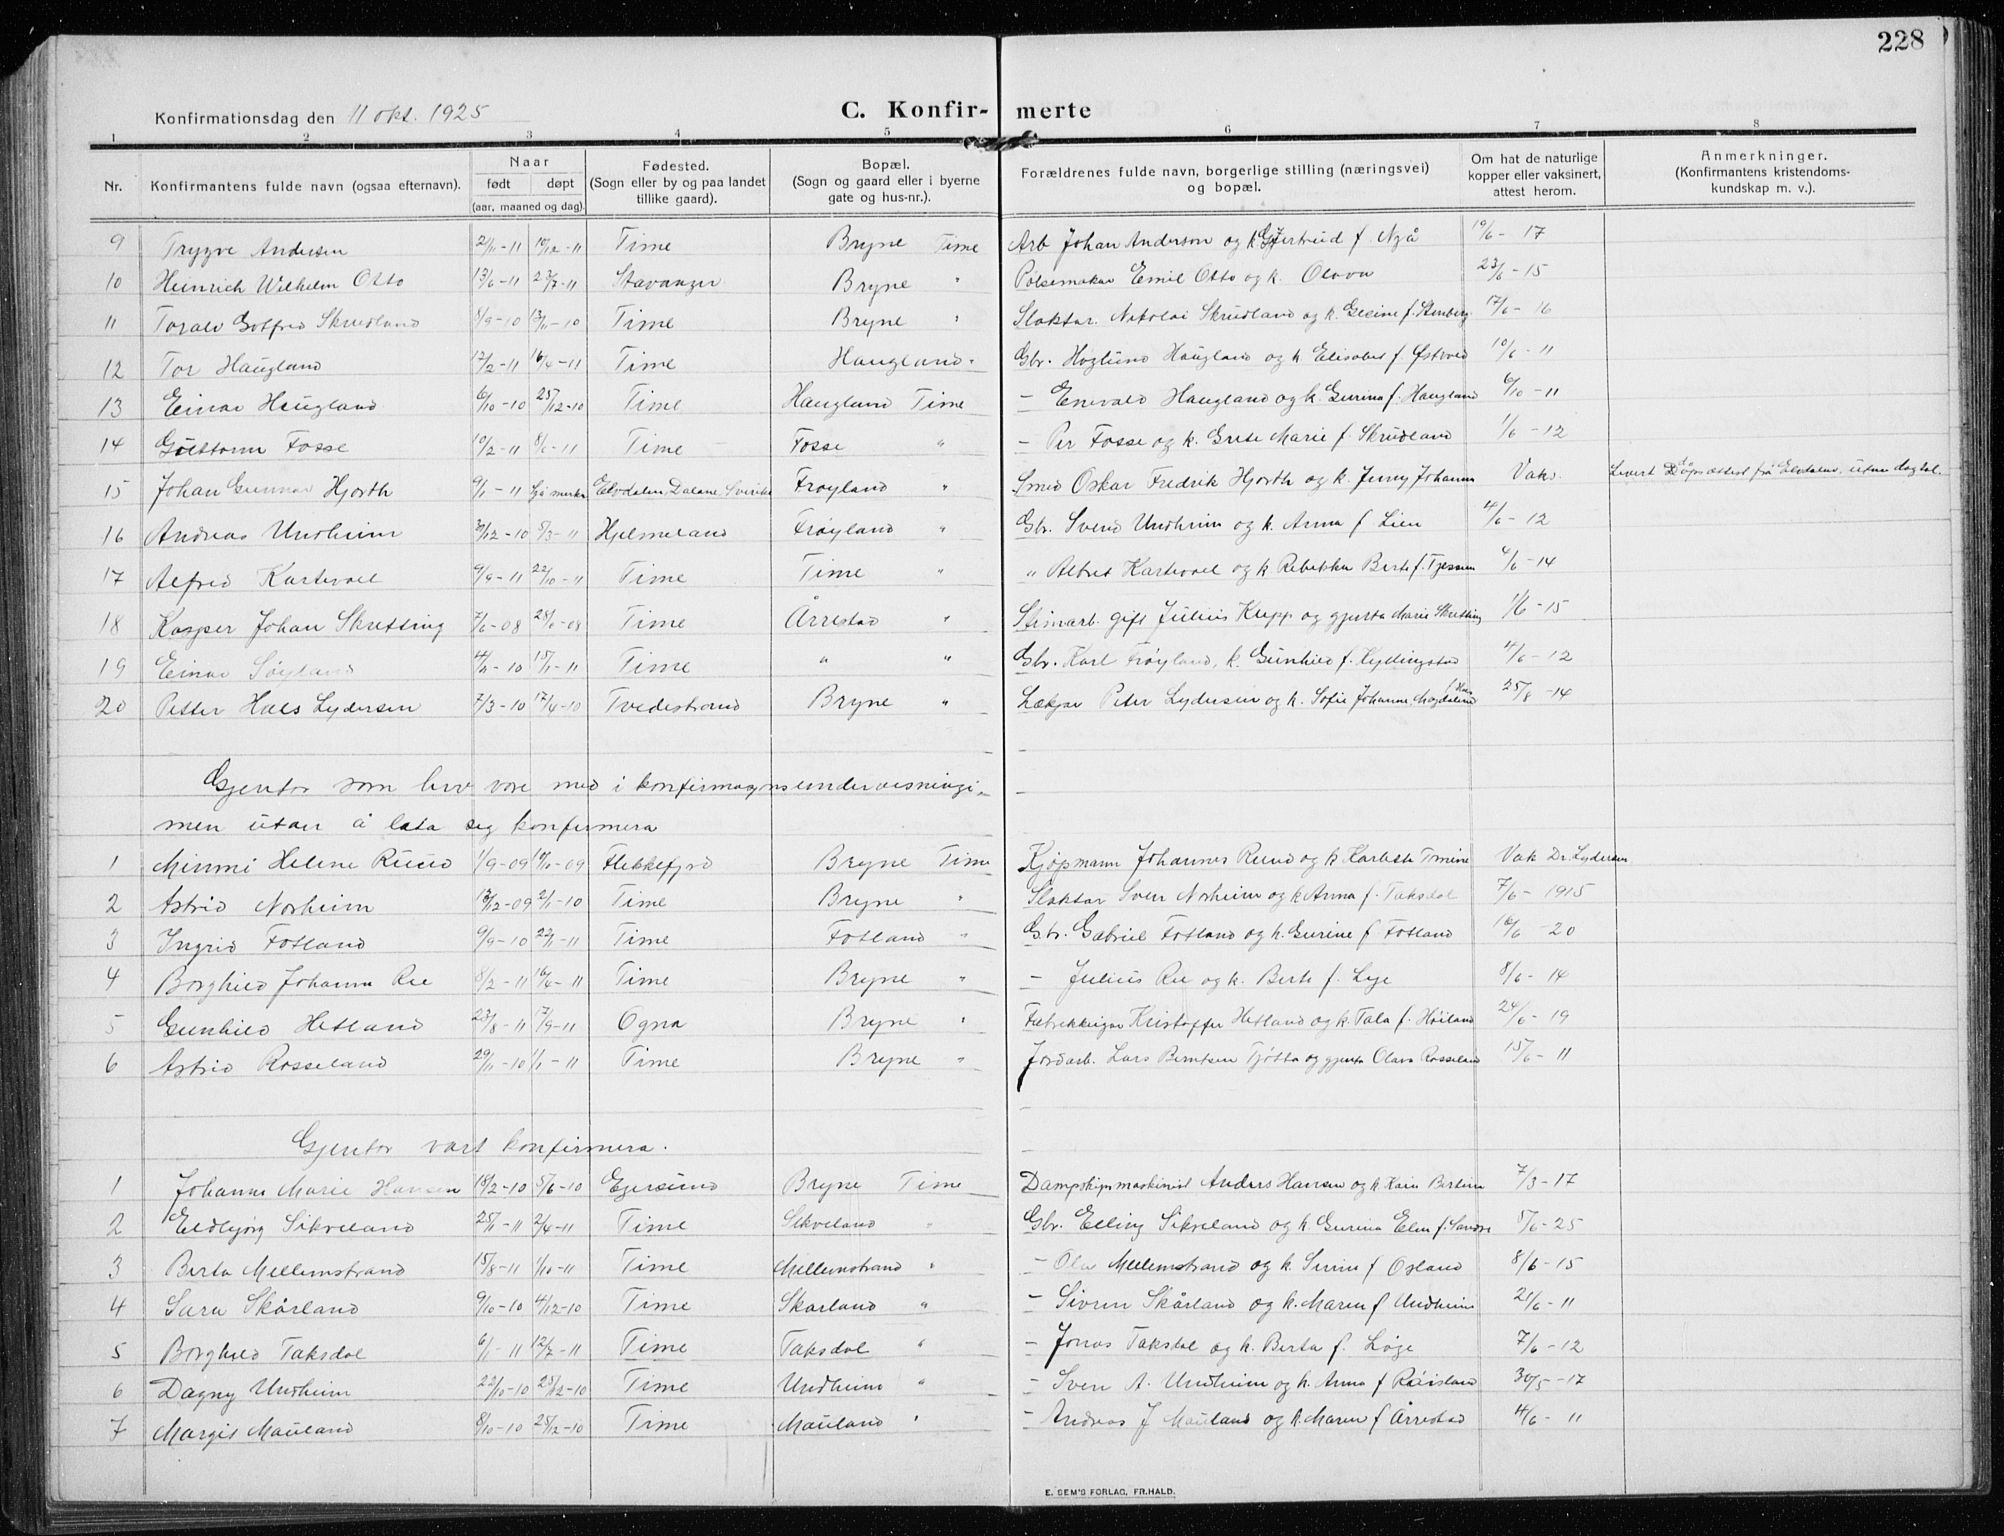 228
Konfirmationsdag den 11 okt. 1925
C. Konfir- merte
1 2 3 4 5 6 7 8
Nr. Konfirmantens fulde navn (ogsaa efternavn). Naar født døpt (aar, maaned og dag). Fødested. (Sogn eller by og paa landet tillike gaard). Bopæl. (Sogn og gaard eller i byerne gate og hus-nr.). Forældrenes fulde navn, borgerlige stilling (næringsvei) og bopæl. Om hat de naturlige kopper eller vaksinert, attest herom. Anmerkninger. (Konfirmantens kristendoms-kundskap m. v.).
9 Trygve Andersen 2/11-11 10/12-11 Time Bryne Time Arb Johan Anderson og k. Gjertrud f. Njå 10/6-17
10 Heinrich Wilhelm Otto 13/6-11 23/7-11 Stavanger Bryne " Pølsemakar Emil Otto og k. Olava 23/6-15
11 Toralv Gotfred Skrudland 8/9-10 13/11-10 Time Bryne " Slaktar Nikolai Skrudland og k. Gesine f. Stenberg 17/6-16
12 Tor Haugland 17/2-11 16/4-11 Time Haugland " Gbr. Hoglund Haugland og k Elisabet f. Østvold 10/6-11
13 Einar Haugland 6/10-10 25/12-10 Time Haugland Time - Enevald Haugland og k. Gurina f. Haugland 6/10-11
14 Guttorm Fosse 10/2-11 8/6-11 Time Fosse " - Per Fosse og k. Grete Marie f. Skrudland 1/6-12
15 Johan Gunnar Hjorth 9/1-11 Sjå merkn Elvdalen, Dalane, Sverike Frøyland " Smed Oskar Fredrik Hjorth og k. Jenny Johanna Vak. Levert Dåpsattest frå Elvdalen, utan dagtal.
16 Andreas Undheim 30/12-10 5/3-11 Hjelmeland Frøyland " Gbr. Svend Undheim og k. Anna f. Lien 4/6-12
17 Alfred Kartevoll 9/9-11 22/10-11 Time Time " " Albret Kartevoll og k Rebekka Berte f. Tjessem 4/6-14
18 Kasper Johan Skretting 7/6-08 28/6-08 Time Årrestad " Stimarb. gift Julius Kupp og gjenta Marie Skretting 1/6-15
19 Einar Søyland 4/11-10 15/1-11 Time " " Gbr. Karl Frøyland, k. Gunhild f. Kydlingstad 4/6-12
20 Petter Haes Lydersen 7/3-10 17/4-10 Tvedestrand Bryne " Lækjar Peter Lydersen og k. Sofie Johanne Magdalene f. Haes 25/8-14
Gjentor som hev vore med i konfirmasjonsundervisningi,
men utan å lata seg konfirmera
1 Mimmi Helene Ruud 1/9-09 10/10-09 Flekkefjord Bryne Time Kjøpmann Johannes Ruud og k. Karlette Tmine Vak Dr. Lydersen
2 Astrid Norheim 13/12-09 2/1-10 Time Bryne " Slaktar Sven Norheim og k. Anna f. Taksdal 7/6-1915
3 Ingrid Fotland 9/9-10 22/1-11 Time Fotland " Gbr. Gabriel Fotland og k. Gurine f Fotland 16/6-20
4 Borghild Johanna Ree 8/2-11 16/4-11 Time Bryne " - Julius Ree og k. Berte f. Lye 8/6-14
5 Gunhild Hetland 23/8-11 17/9-11 Ogna Bryne " Fabrikkeigar Kristoffer Hetland og k. Tala f. Høiland 24/6-19
6 Astrid Rosseland 29/11-10 1/1-11 Time Bryne " Jordarb. Lars Berntsen Tjøtta og gjenta Olava Rosseland 15/6-11
Gjentor vart konfirmera.
1 Johanne Marie Hansen 18/2-10 5/6-10 Egersund Bryne Time Dampskipsmaskinist Anders Hansen og k. Karin Bertine 7/3-17
2 Eldbjørg Sikveland 25/1-11 2/4-11 Time Sikveland " Gbr. Elling Sikveland og k Gurina Elen f. Sandve 5/6-25
3 Berta Mellemstrand 15/8-11 1/10-11 Time Mellemstrand " - Ola Mellemstrand og k. Sirine f Osland 8/6-15
4 Sara Skårland 9/10-10 4/12-10 Time Skårland " - Sivert Skårland og k. Maren f Undheim 21/6-11
5 Borghild Taksdal 6/1-11 12/2-11 Time Taksdal " - Jonas Taksdal og k. Berta f. Løge 7/6-12
6 Dagny Undheim 22/10-10 25/12-10 Time Undheim " - Sven A. Undheim og k. Anna f Røisland 30/5-17
7 Margit Mauland 8/10-10 25/12-10 Time Mauland " - Andreas J Mauland og k. Maren f Årrestad 4/6-11
E. SEM'S FORLAG, FR.HALD.